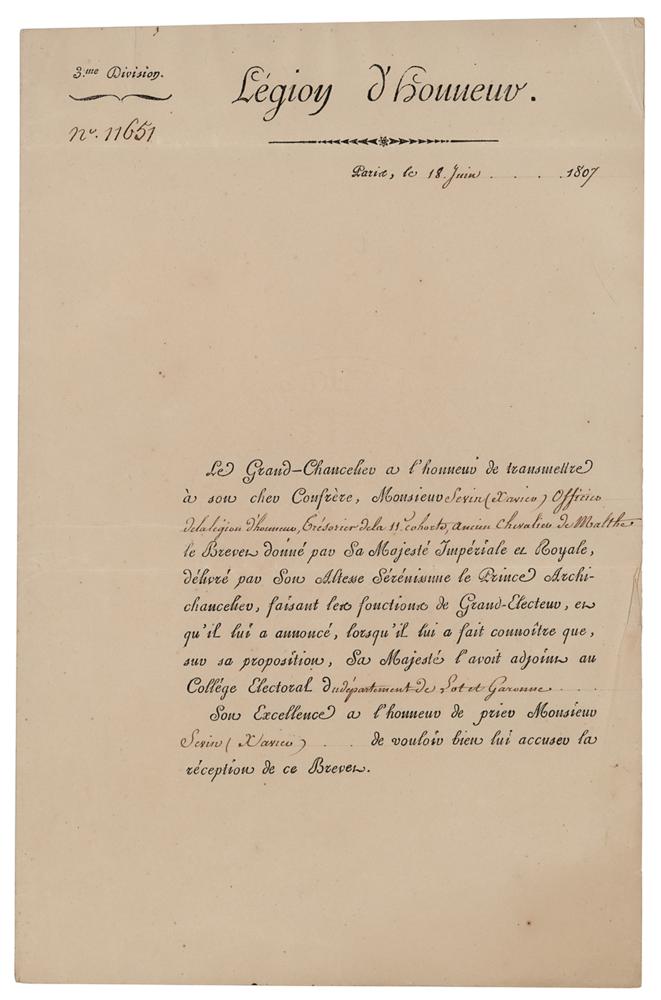 3.me Division.
Légion d'honneur.
No. 11651
Paris, le 18. Juin . . . . 1807
Le Grand-Chancelier a l'honneur de transmettre
à son cher Confrère, Monsieur Sevin (Xavier) Officier
de la légion d'honneur, Trésorier de la 11e cohorte, ancien Chevalier de Malthe
le Brevet donné par Sa Majesté Impériale et Royale,
délivré par Son Altesse Sérénissime le Prince Archi-
chancelier, faisant les fonctions de Grand-Electeur, et
qu'il lui a annoncé, lorsqu'il lui a fait connoître que,
sur sa proposition, Sa Majesté l'avoit adjoint au
Collége Electoral du département de Lot et Garonne . . . .
Son Excellence a l'honneur de prier Monsieur
Sevin (Xavier) . . . de vouloir bien lui accuser la
réception de ce Brevet.